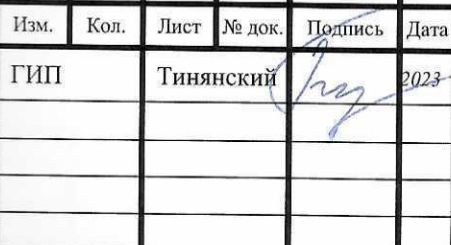 Изм. Кол. Лист № док. Подпись Дата
ГИП Тинянский 2023